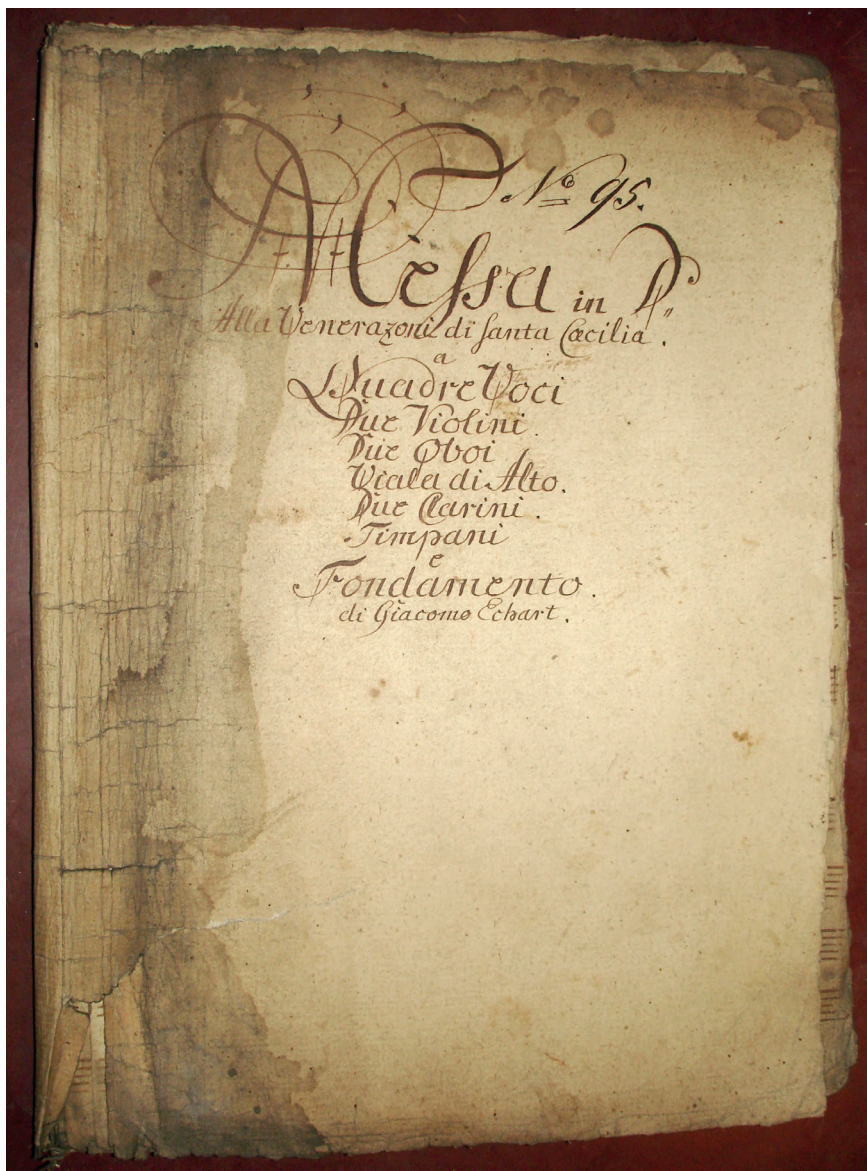 No 95.
Messa in D.
Alla Venerazoni di Santa Cæcilia.
a
Quadre Voci
Due Violini
Due Oboi
Viola di Alto.
Due Clarini.
Timpani
e
Fondamento.
di Giacomo Echart.